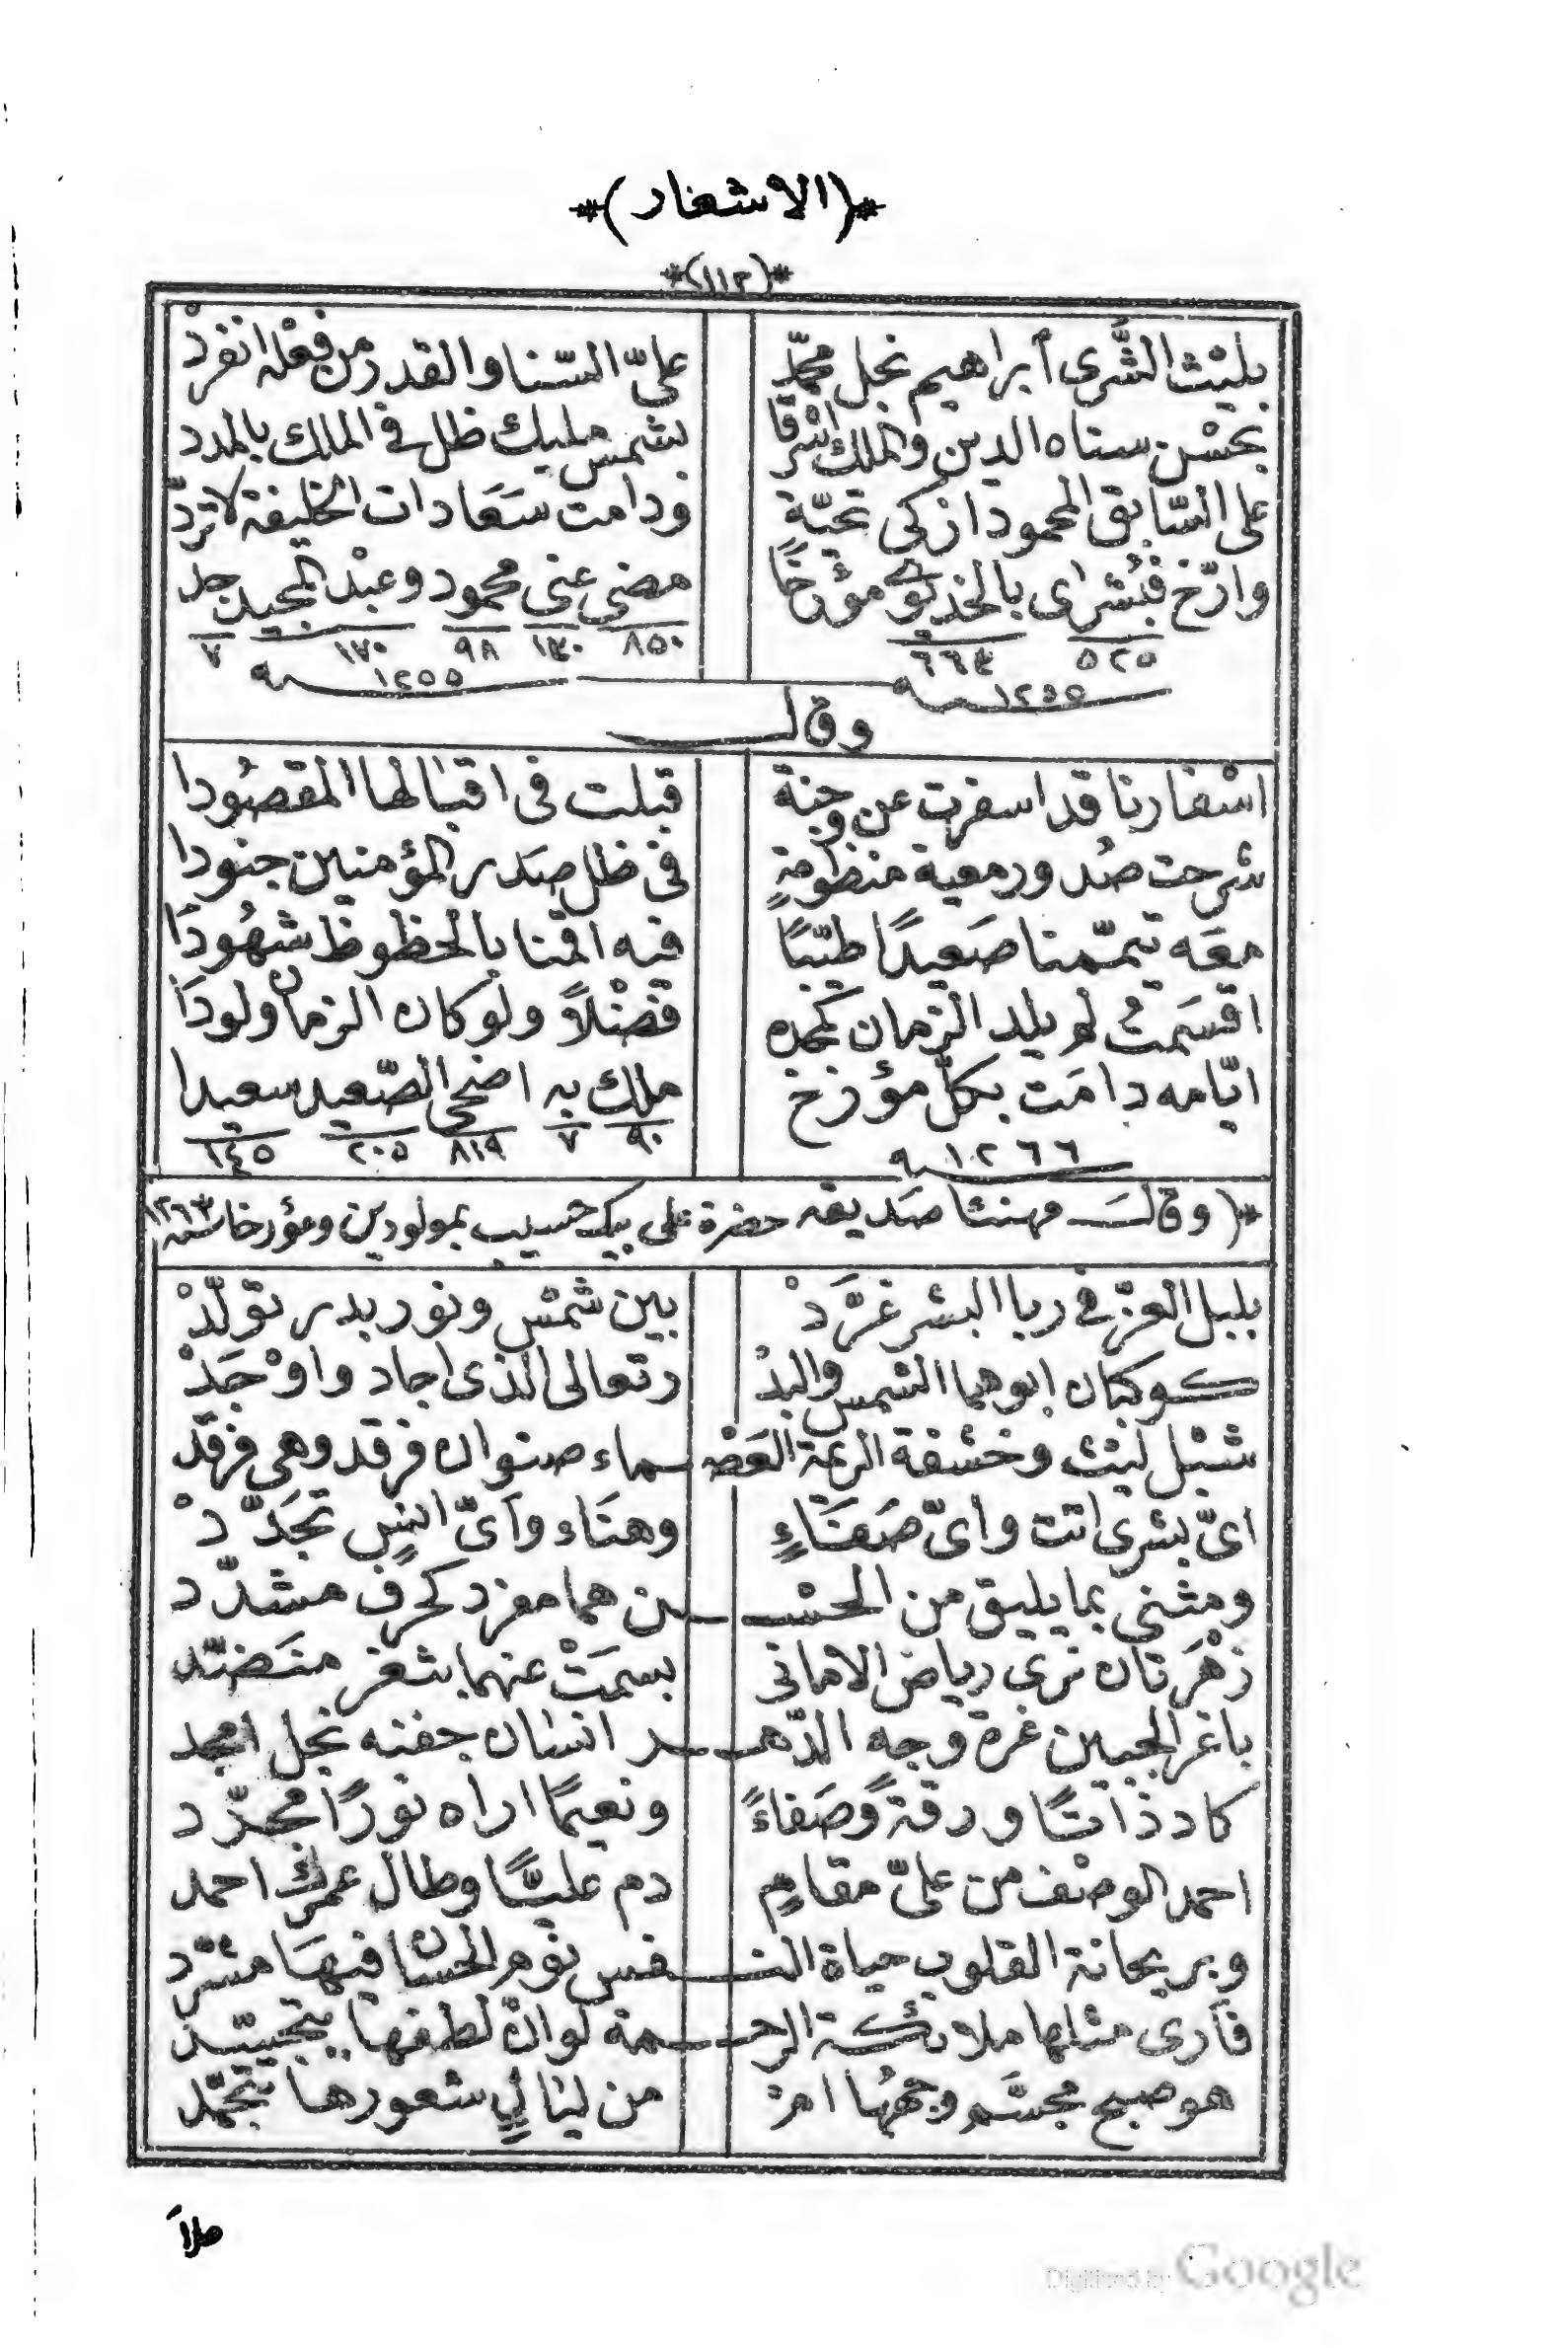 *(الاشعار)*
*(١١٢)*
بليْث الشَّرى ابراهيم نجل محمّد علىّ السّنا والقدر من فعْله انفردْ
بحسْن سناه الدين والملك اشْرقا بشمس مليك ظل فى الملك بالمدد
على السّابق المحمود ازكى تحيّة ودامت سَعَادات الخليفة لا تردّ
وارّخ فبُشراى بالخديوى مؤرخًا مضى عنى محمود وعبْد المجيد جد
٥٢٥ ٦٦٣ ٨٥٠ ١٣٠ ٩٨ ١٧٠ ٧
١٢٥٥ سنه ١٢٥٥ سنه
وقال
اسْفارنا قد اسفرت عن وجنة قبلت فى اقبالها المقصُودا
شرحت صُدور معية منظومةٍ فى ظل صدر المؤمنين جنودا
معَه تيمّمنا صَعيدًا طيّبًا فيه اقمنا بالحظوظ شهُودَا
اقسَمتُ لم يلد الزمان كمجده فضْلاً ولو كان الزمان ولودَا
ايّامه دامَت بكلّ مؤرخ ملك به اضحى الصّعيد سعيدا
١٢٦٦ سنه ٩٠ ٧ ٨١٩ ٢٠٥ ١٤٥
*( وقال مهنئا صديقه حضرة على بيك حسيب بمولودين ومؤرخا سنه ١٢٦٣
بلبل العزّ فى ربا البشر غرَّدْ بين شمسْ ونور بدر تولّدْ
كوكبان ابوهما الشمس والبدْ ر تعالى الذى اجاد واوْجَدْ
شبْل ليْث وخشفة الريمة العَصْـ ـماء صنوان فرقد وهى فرقد
اىّ بشرى اتت واىّ صَفَاءٍ وهنَاء واَىّ انسٍ تجَدَّدْ
ومثنى بما يليق من الحسْـ ـن هما مفرد كحرف مشدّد
زهْرَتان نرى رياض الامانى بسمَتْ عنهما بثغر منَضّد
باغر الجبين غرة وجه الدّهـ ـر انسان جفنه نجل امجد
كاد ذاتًا ورقةً وصَفاءً ونعيمًا اراه نورًا مجرّد
احمد الوصْف من علىّ مقامٍ دم عليًّا وطال عمرك احمد
وبريحانة القلوب حياة النـ ـفس نوم الحسان فيهَا مشرّد
فأرى مثلها ملائكة الرحـ ـمة لو انّ لطفها يتجسّد
هو صبح مجسَّم وجهُها ام من ليالٍ شعورها تتجمّد
ملأَ
Digitized by Google